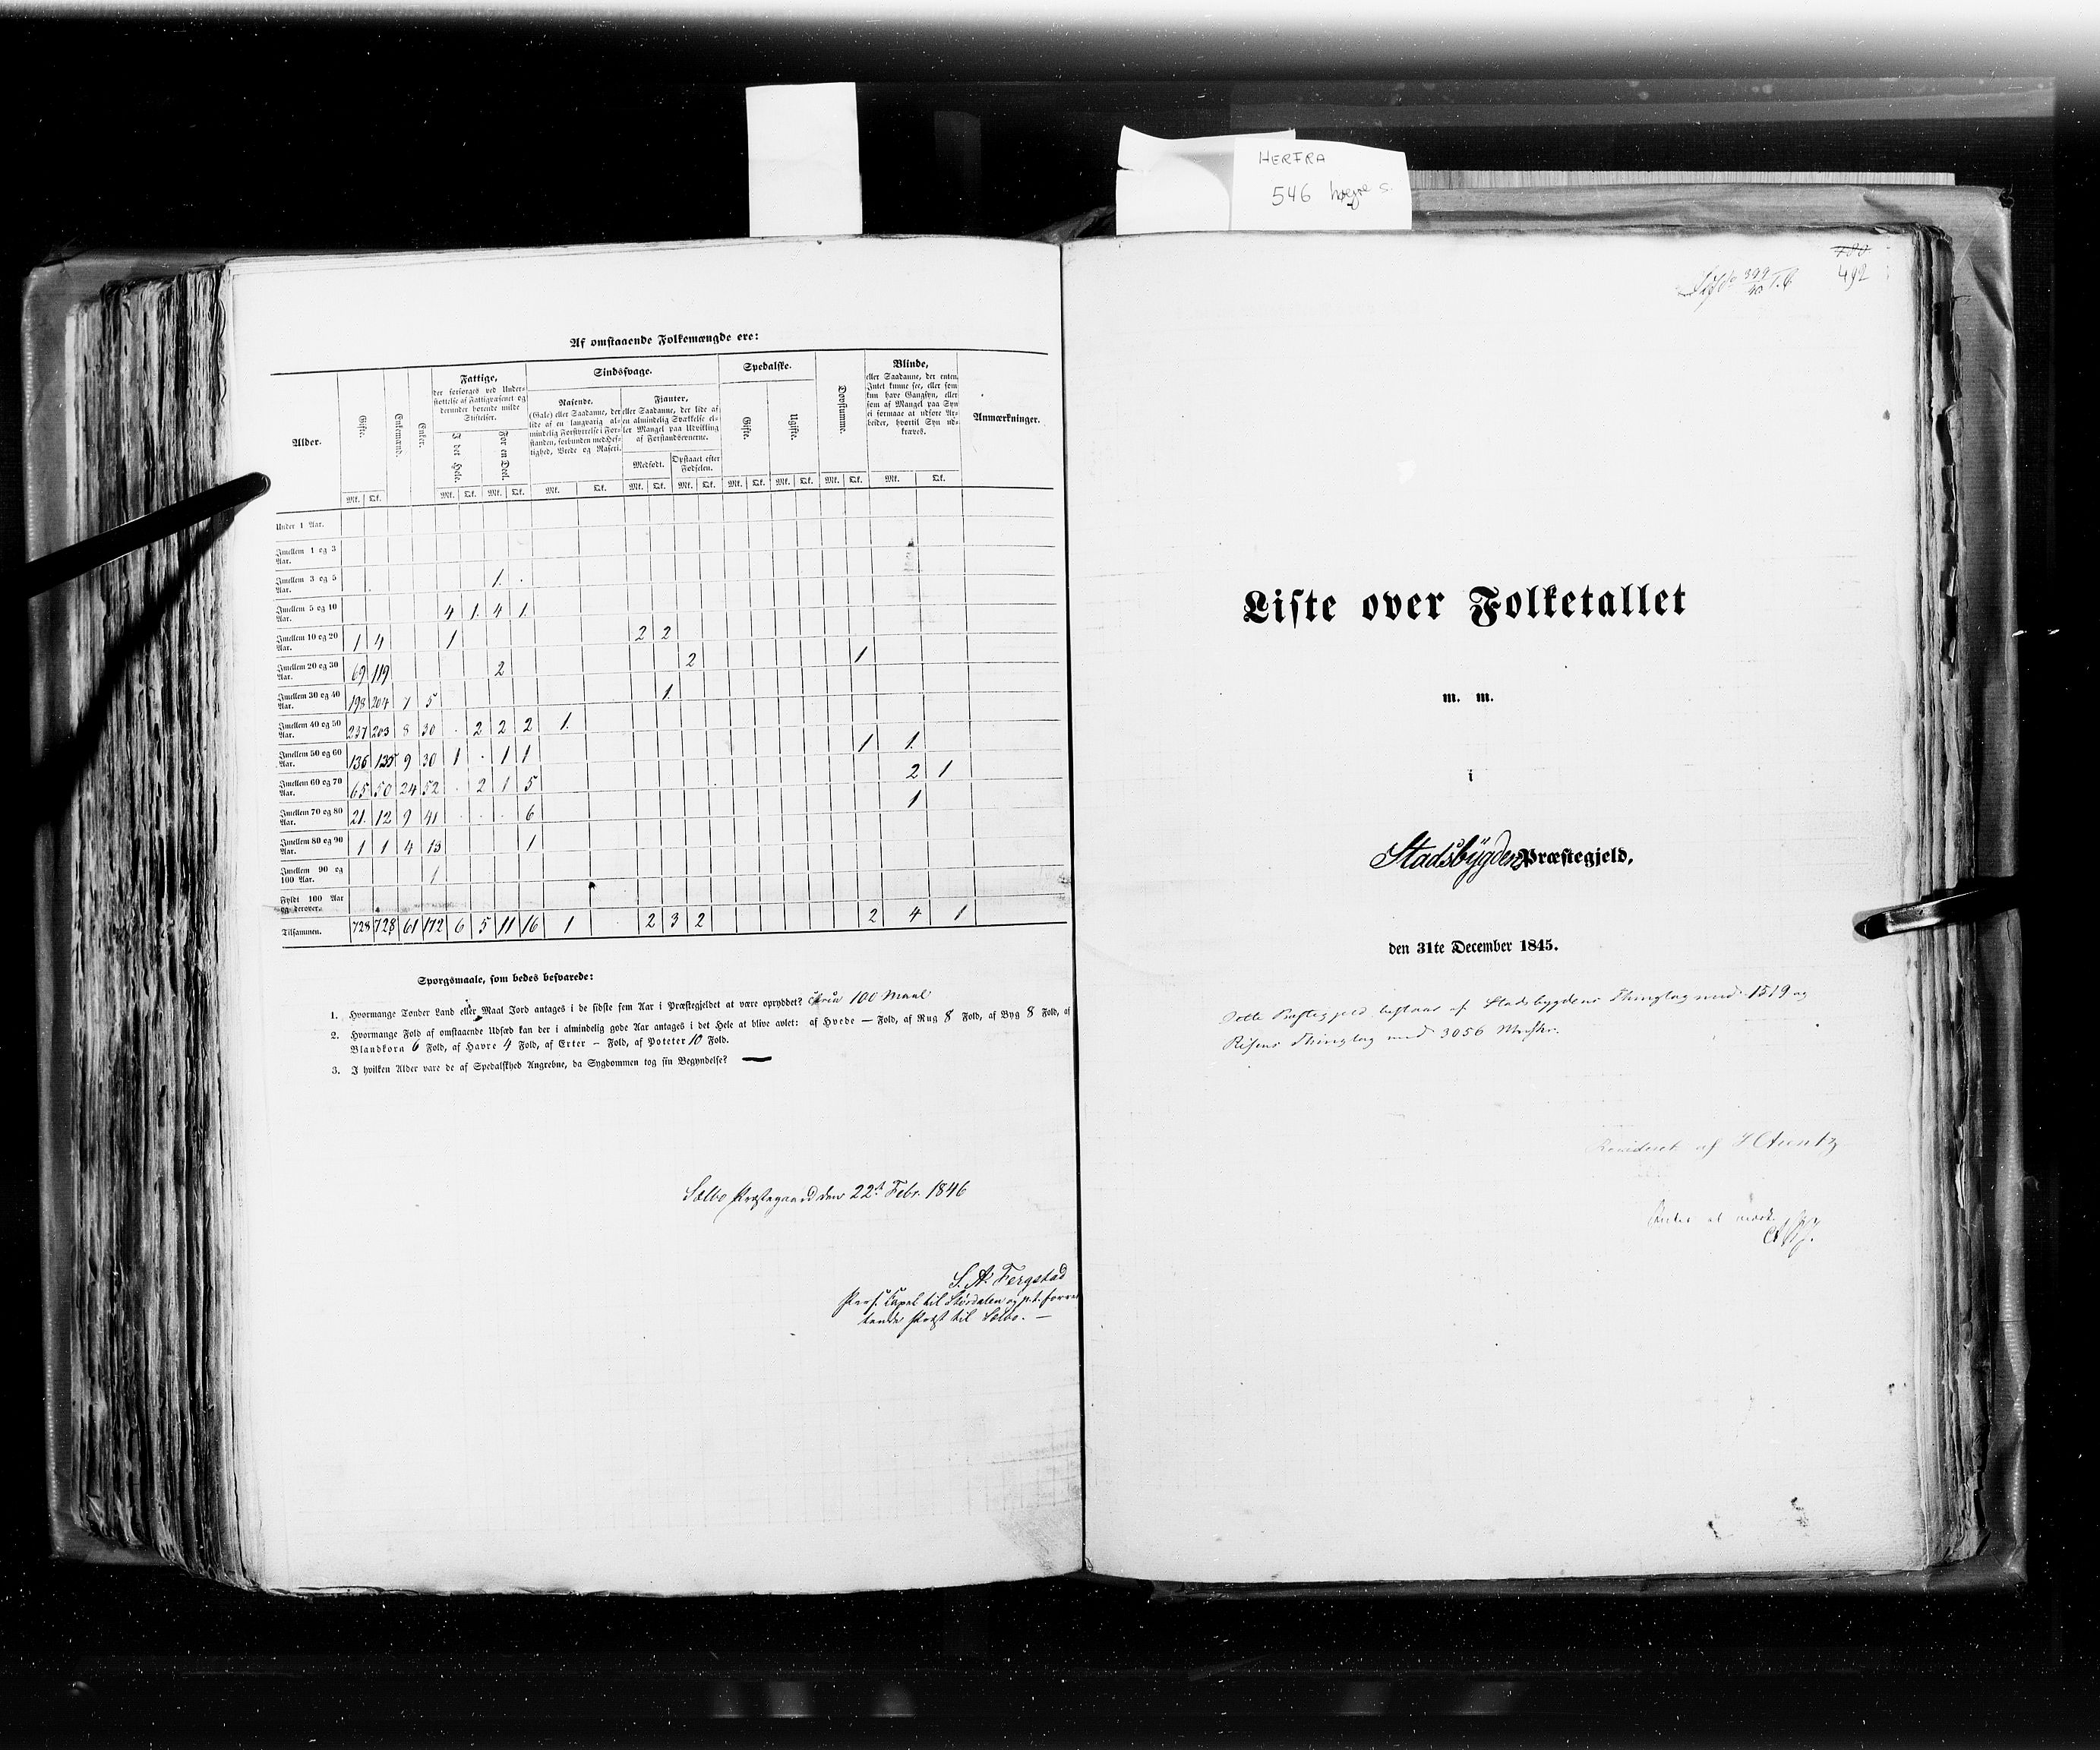 HERFRA
546 høyre s.
Af omstaaende Folkemængde ere:
Alder. Gifte. Enkemænd. Enker. Fattige, Sindssvage. Spedalske. Døvstumme. Blinde, Anmærkninger.
der forsørges ved Understøttelse af Fattigvæsenet og derunder hørende milde Stiftelser.
I det Hele. For en Deel.
Rasende. (Gale) eller Saadanne, der lide af en langvarig almindelig Forstyrrelse i Forstanden, forbunden med Heftighed, Vrede og Raseri.
Fjanter, eller Saadanne, der lide af en almindelig Svækkelse eller Mangel paa Udvikling af Forstandsevnerne.
Medfødt. Opstaaet efter Fødselen.
Gifte. Ugifte.
eller Saadanne, der enten Intet kunne see, eller som kun have Gangsyn, eller som af Mangel paa Syn ei formaae at udføre Arbeider, hvortil Syn udkræves.
Mk. Qk. Mk. Qk. Mk. Qk. Mk. Qk. Mk. Qk. Mk. Qk. Mk. Qk. Mk. Qk. Mk. Qk. Mk. Qk.
Under 1 Aar.
Imellem 1 og 3 Aar.
Imellem 3 og 5 Aar. 1. .
Imellem 5 og 10 Aar. 4 1. 4 1.
Imellem 10 og 20 Aar. 1 4 1 2 2
Imellem 20 og 30 Aar. 69 119 2 2 1
Imellem 30 og 40 Aar. 198 204 7 5 1.
Imellem 40 og 50 Aar. 237 203 8 30 . 2 2 2 1.
Imellem 50 og 60 Aar. 136 135 9 30 1 . 1 1 1 1.
Imellem 60 og 70 Aar. 65 50 24 52 . 2 1 5 2 1
Imellem 70 og 80 Aar. 21. 12 9 41 . . . 6 1
Imellem 80 og 90 Aar. 1 1 4 13 1
Imellem 90 og 100 Aar. 1
Fyldt 100 Aar og derover.
Tilsammen. 728 728 61 172 6 5 11 16 1 2 3 2 2 4 1
Spørgsmaale, som bedes besvarede:
1. Hvormange Tønder Land eller Maal Jord antages i de sidste fem Aar i Præstegjeldet at være opryddet? circa 100 Maal
2. Hvormange Fold af omstaaende Udsæd kan der i almindelig gode Aar antages i det Hele at blive avlet: af Hvede — Fold, af Rug 8 Fold, af Byg 8 Fold, af
Blandkorn 6 Fold, af Havre 4 Fold, af Erter – Fold, af Poteter 10 Fold.
3. I hvilken Alder vare de af Spedalskhed Angrebne, da Sygdommen tog sin Begyndelse? —
Sælbo Præstegaard den 22d Febr. 1846
S. A. Fergstad
Pers. Capel. til Størdalen og p.t. forret
tende Præst til Sælbo. —
492
Liste over Folketallet
m. m.
i
Stadsbygdens Præstegjeld,
den 31te December 1845.
Dette Præstegjeld bestaar af Stadsbygdens Thinglag med 1519 og
Risens Thinglag med 3056 Msk.
Revideret af